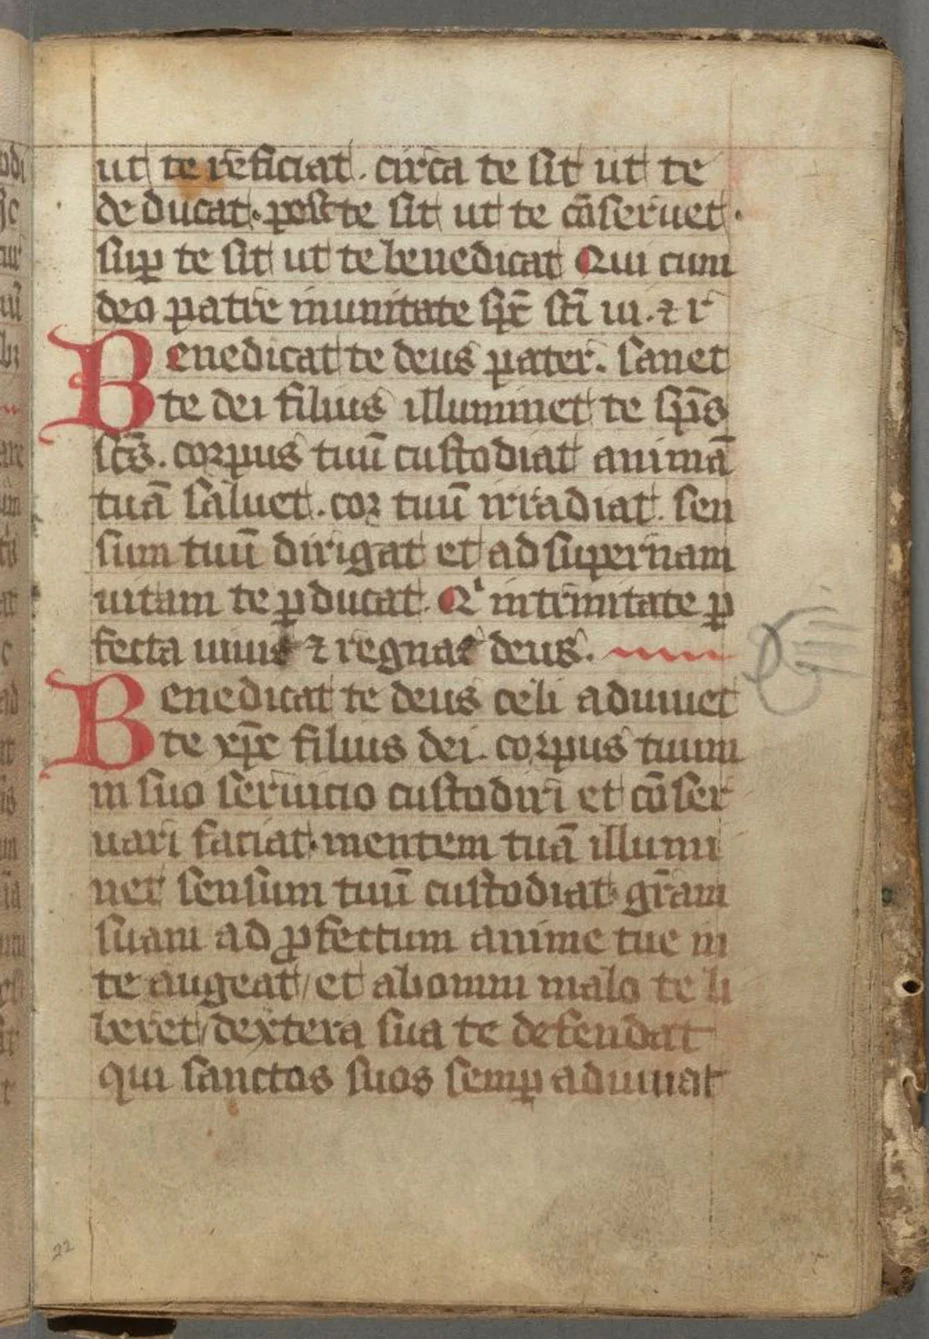 ut te reficiat. circa te sit ut te
deducat. post te sit ut te cōseruet.
suꝑ te sit ut te benedicat Qui cum
deo patre inunitate sp̄c sc̄i ui. ⁊ r
Benedicat te deus pater. sanet
te dei filius illuminet te sp̄s
sc̄s. corpus tuū custodiat animā
tuā saluet. cor tuū irradiat. sen
sum tuū dirigat et ad supernam
uitam te ꝑducat. Qⁱ in trinitate ꝑ
fecta uiuis ⁊ regnas deus.
Benedicat te deus celi adiuuet
te xp̄c filius dei. corpus tuum
in suo seruicio custodiri et cōser
uari faciat. mentem tuā illumi
net sensum tuū custodiat. gr̄am
suam ad ꝓfectum anime tue in
te augeat / et ab omni malo te li
beret / dextera sua te defendat
qui sanctos suos semꝑ adiuuat
22